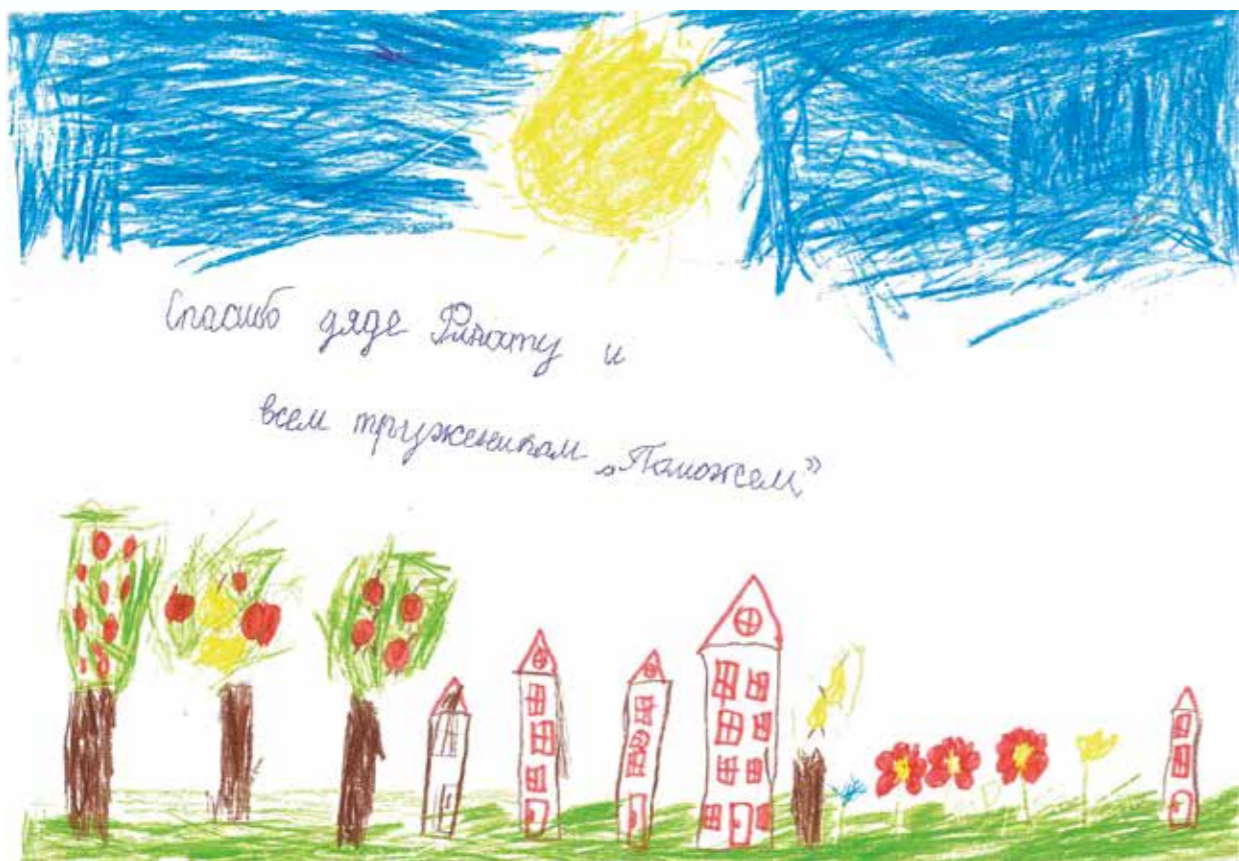 Спасибо дяде Ринату и
всем труженикам „Поможем”